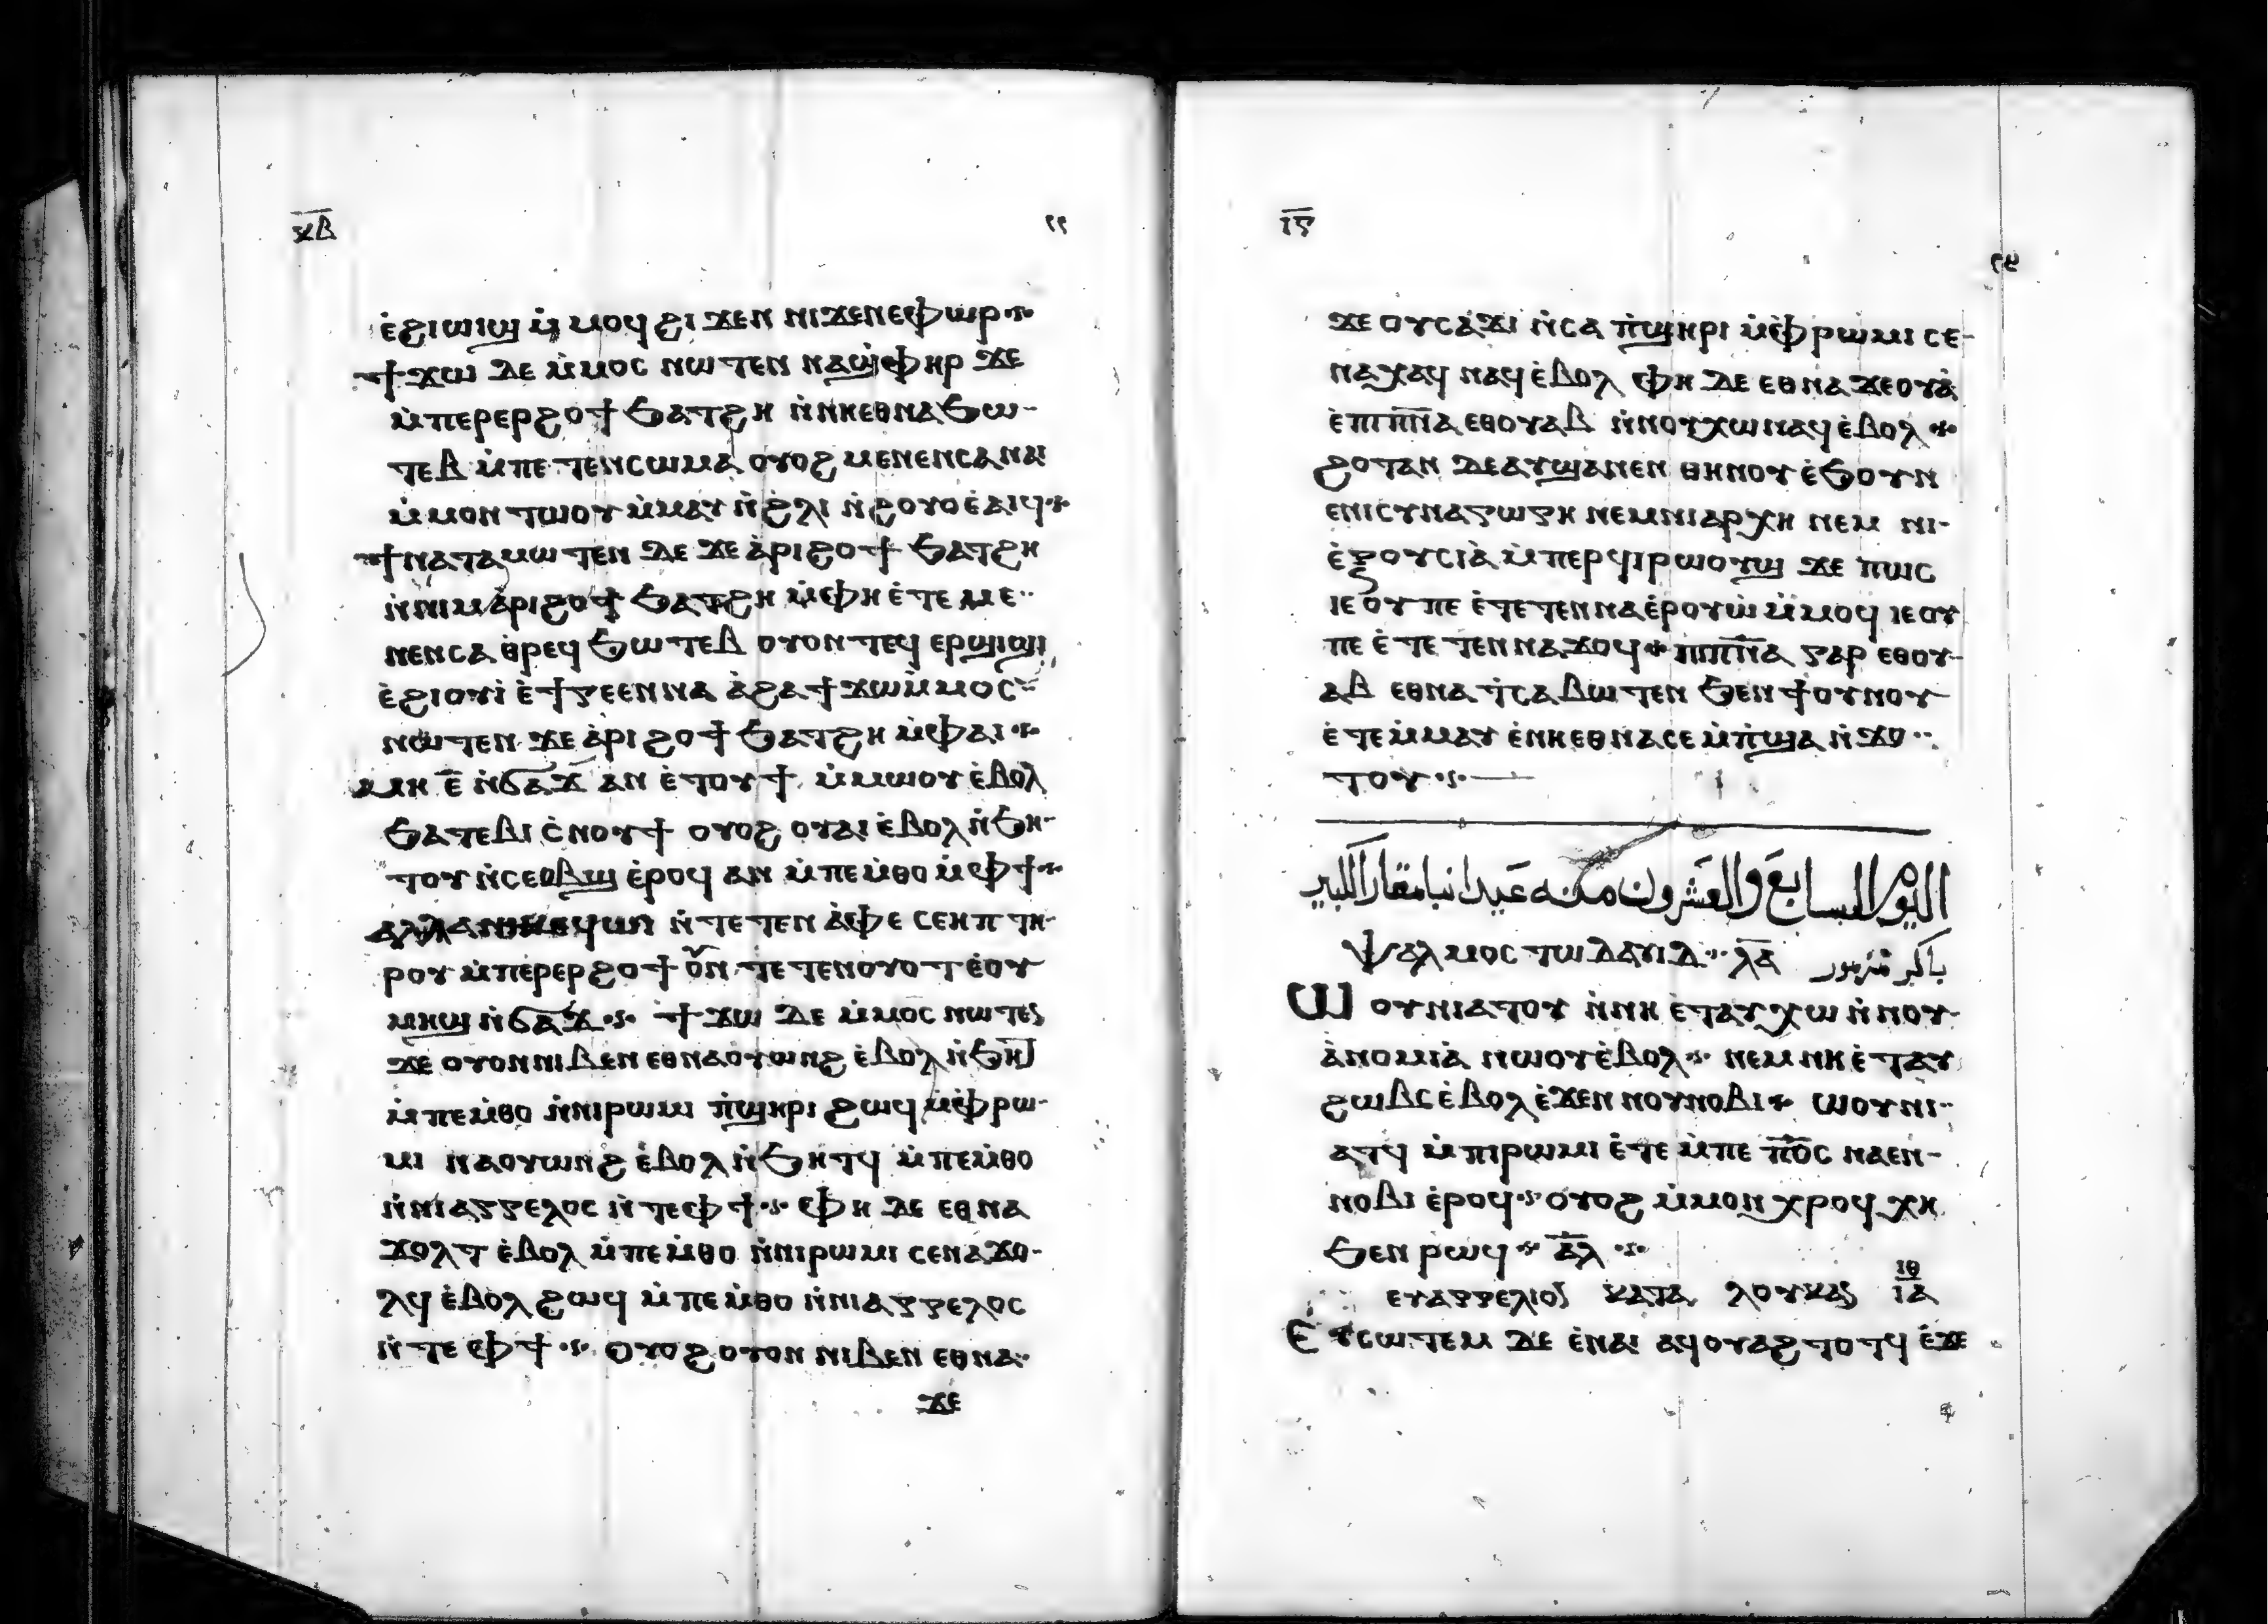 ⲕⲃ
ⲉ̀ϩⲓⲱⲓϣ ⲙ̀ⲙⲟϥ ϩⲓϫⲉⲛ ⲛⲓϫⲉⲛⲉⲫⲱⲣ
ϯϫⲱ ⲇⲉ ⲙ̀ⲙⲟⲥ ⲛⲱⲧⲉⲛ ⲛⲁϣ̀ⲫⲏⲣ ϫⲉ
ⲙ̀ⲡⲉⲣⲉⲣϩⲟϯ ϧⲁⲧϩⲏ ⲛ̀ⲛⲏⲉⲑⲛⲁϧⲱ-
ⲧⲉⲃ ⲙ̀ⲡⲉⲧⲉⲛⲥⲱⲙⲁ ⲟⲩⲟϩ ⲙⲉⲛⲉⲛⲥⲁ ⲛⲁⲓ
ⲙ̀ⲙⲟⲛ ⲧⲱⲟⲩ ⲙ̀ⲙⲁⲩ ⲛ̀ϩ̀ⲗⲓ ⲛ̀ϩⲟⲩⲟ ⲉ̀ⲁⲓϥ
ϯⲛⲁⲧⲁⲙⲱⲧⲉⲛ ⲇⲉ ϫⲉ ⲁ̀ⲣⲓϩⲟϯ ϧⲁⲧϩⲏ
ⲛ̀ⲛⲓⲙ ⲁ̀ⲣⲓϩⲟϯ ϧⲁⲧϩⲏ ⲙ̀ⲫⲏ ⲉ̀ⲧⲉ ⲙⲉ
ⲛⲉⲛⲥⲁ ⲑ̀ⲣⲉϥϧⲱⲧⲉⲃ ⲟⲩⲟⲛⲧⲉϥ ⲉⲣϣⲓϣⲓ
ⲉ̀ϩⲓⲟⲩⲓ̀ ⲉ̀ϯⲅⲉⲉⲛⲛⲁ ⲁ̀ϩⲁ ϯϫⲱ ⲙ̀ⲙⲟⲥ
ⲛⲱⲧⲉⲛ ϫⲉ ⲁ̀ⲣⲓϩⲟϯ ϧⲁⲧϩⲏ ⲙ̀ⲫⲁⲓ
ⲙⲏ ⲉ̅ ⲛ̀ϭⲁϫ ⲁⲛ ⲉ̀ⲧⲟⲩϯ ⲙ̀ⲙⲱⲟⲩ ⲉ̀ⲃⲟⲗ
ϧⲁ ⲧⲉⲃⲓ ⲥ̀ⲛⲟⲩϯ ⲟⲩⲟϩ ⲟⲩⲁⲓ ⲉ̀ⲃⲟⲗ ⲛ̀ϧⲏ-
ⲧⲟⲩ ⲛ̀ⲥⲉⲟⲃϣ ⲉ̀ⲣⲟϥ ⲁⲛ ⲙ̀ⲡⲉⲙ̀ⲑⲟ ⲙ̀ⲫϯ
ⲁⲗⲗⲁ ⲛ̀ⲧⲉ ⲧⲉⲛⲁ̀ⲫⲉ ⲥⲉⲏⲡ ⲧⲏ-
ⲣⲟⲩ ⲙ̀ⲡⲉⲣⲉⲣϩⲟϯ ⲟⲩⲛ ⲧⲉⲧⲉⲛⲟⲩⲟⲧ ⲉ̀ⲟⲩ
ⲙⲏϣ ⲛ̀ϭⲁϫ ϯϫⲱ ⲇⲉ ⲙ̀ⲙⲟⲥ ⲛⲱⲧⲉⲛ
ϫⲉ ⲟⲩⲟⲛ ⲛⲓⲃⲉⲛ ⲉⲑⲛⲁⲟⲩⲱⲛϩ ⲉ̀ⲃⲟⲗ ⲛ̀ϧⲏⲧ
ⲙ̀ⲡⲉⲙ̀ⲑⲟ ⲛ̀ⲛⲓⲣⲱⲙⲓ ⲡ̀ϣⲏⲣⲓ ϩⲱϥ ⲙ̀ⲫ̀ⲣⲱ-
ⲙⲓ ⲛⲁⲟⲩⲱⲛϩ ⲉ̀ⲃⲟⲗ ⲛ̀ϧⲏⲧϥ ⲙ̀ⲡⲉⲙ̀ⲑⲟ
ⲛ̀ⲛⲓⲁⲅⲅⲉⲗⲟⲥ ⲛ̀ⲧⲉ ⲫϯ ⲫⲏ ⲇⲉ ⲉⲑⲛⲁ
ϫⲟⲗⲧ ⲉ̀ⲃⲟⲗ ⲙ̀ⲡⲉⲙ̀ⲑⲟ ⲛ̀ⲛⲓⲣⲱⲙⲓ ⲥⲉⲛⲁϫⲟ-
ⲗϥ ⲉ̀ⲃⲟⲗ ϩⲱϥ ⲙ̀ⲡⲉⲙ̀ⲑⲟ ⲛ̀ⲛⲓⲁⲅⲅⲉⲗⲟⲥ
ⲛ̀ⲧⲉ ⲫϯ ⲟⲩⲟϩ ⲟⲩⲟⲛ ⲛⲓⲃⲉⲛ ⲉⲑⲛⲁ
ϫⲉ
ⲓⲅ
ϫⲉ ⲟⲩⲥⲁϫⲓ ⲛ̀ⲥⲁ ⲡ̀ϣⲏⲣⲓ ⲙ̀ⲫ̀ⲣⲱⲙⲓ ⲥⲉ-
ⲛⲁⲭⲁϥ ⲛⲁϥ ⲉ̀ⲃⲟⲗ ⲫⲏ ⲇⲉ ⲉⲑⲛⲁϫⲉⲟⲩⲁ̀
ⲉ̀ⲡⲓⲡ̅ⲛ̅ⲁ ⲉⲑⲟⲩⲁⲃ ⲛ̀ⲛⲟⲩⲭⲱ ⲛⲁϥ ⲉ̀ⲃⲟⲗ
ϩⲟⲧⲁⲛ ⲇⲉ ⲁⲩϣⲁⲛⲉⲛ ⲑⲏⲛⲟⲩ ⲉ̀ϧⲟⲩⲛ
ⲉⲛⲓⲥⲩⲛⲁⲅⲱⲅⲏ ⲛⲉⲙ ⲛⲓⲁⲣⲭⲏ ⲛⲉⲙ ⲛⲓ-
ⲉ̀ⲝⲟⲩⲥⲓⲁ̀ ⲙ̀ⲡⲉⲣϥⲓⲣⲱⲟⲩϣ ϫⲉ ⲡⲱⲥ
ⲓⲉ ⲟⲩ ⲡⲉ ⲉ̀ⲧⲉⲧⲉⲛⲛⲁⲉ̀ⲣⲟⲩⲱ̀ ⲙ̀ⲙⲟϥ ⲓⲉ ⲟⲩ
ⲡⲉ ⲉ̀ⲧⲉⲧⲉⲛⲛⲁϫⲟϥ ⲡⲓⲡ̅ⲛ̅ⲁ ⲅⲁⲣ ⲉⲑⲟⲩ-
ⲁⲃ ⲉⲑⲛⲁⲧ̀ⲥⲁⲃⲱⲧⲉⲛ ϧⲉⲛ ϯⲟⲩⲛⲟⲩ
ⲉ̀ⲧⲉⲙ̀ⲙⲁⲩ ⲉ̀ⲛⲏⲉⲑⲛⲁⲥⲉⲙ̀ⲡ̀ϣⲁ ⲛ̀ϫⲟ
ⲧⲟⲩ
اليوم السابع والعشرون منه عيد انبا مقار الكبير
ⲯⲁⲗⲙⲟⲥ ⲧⲱ ⲇⲁⲩⲓⲇ ⲗ̅ⲁ̅ باكر مزمور
ⲱⲟⲩⲛⲓⲁⲧⲟⲩ ⲛ̀ⲛⲏ ⲉ̀ⲧⲁⲩⲭⲱ ⲛ̀ⲛⲟⲩ-
ⲁ̀ⲛⲟⲙⲓⲁ̀ ⲛⲱⲟⲩ ⲉ̀ⲃⲟⲗ ⲛⲉⲙ ⲛⲏ ⲉ̀ⲧⲁⲩ
ϩⲱⲃⲥ ⲉ̀ⲃⲟⲗ ⲉ̀ϫⲉⲛ ⲛⲟⲩⲛⲟⲃⲓ ⲱⲟⲩⲛⲓ-
ⲁⲧϥ ⲙ̀ⲡⲓⲣⲱⲙⲓ ⲉ̀ⲧⲉ ⲙ̀ⲡⲉ ⲡ̅ⲟ̅ⲥ ⲛⲁⲉⲛ-
ⲛⲟⲃⲓ ⲉ̀ⲣⲟϥ ⲟⲩⲟϩ ⲙ̀ⲙⲟⲛ ⲭⲣⲟϥ ⲭⲏ
ϧⲉⲛ ⲣⲱϥ ⲁ̅ⲗ̅
ⲉⲩⲁⲅⲅⲉⲗⲓⲟⲛ ⲕⲁⲧⲁ ⲗⲟⲩⲕⲁⲛ ⲓⲑ ⲓⲁ
ⲉⲩⲥⲱⲧⲉⲙ ⲇⲉ ⲉ̀ⲛⲁⲓ ⲁϥⲟⲩⲁϩⲧⲟⲧϥ ⲉ̀ϫⲉ